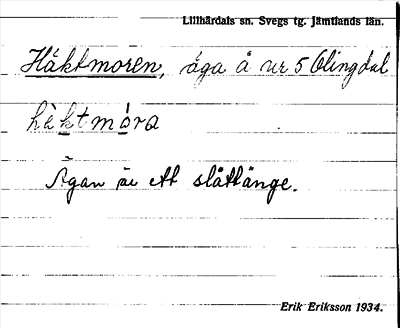 Lillhärdals sn. Svegs tg. Jämtlands län.
Håktmoren, äga å nr 5 Olingdal
hè̀ktmòra
Ägan är ett slåttänge.
Erik Eriksson 1934.